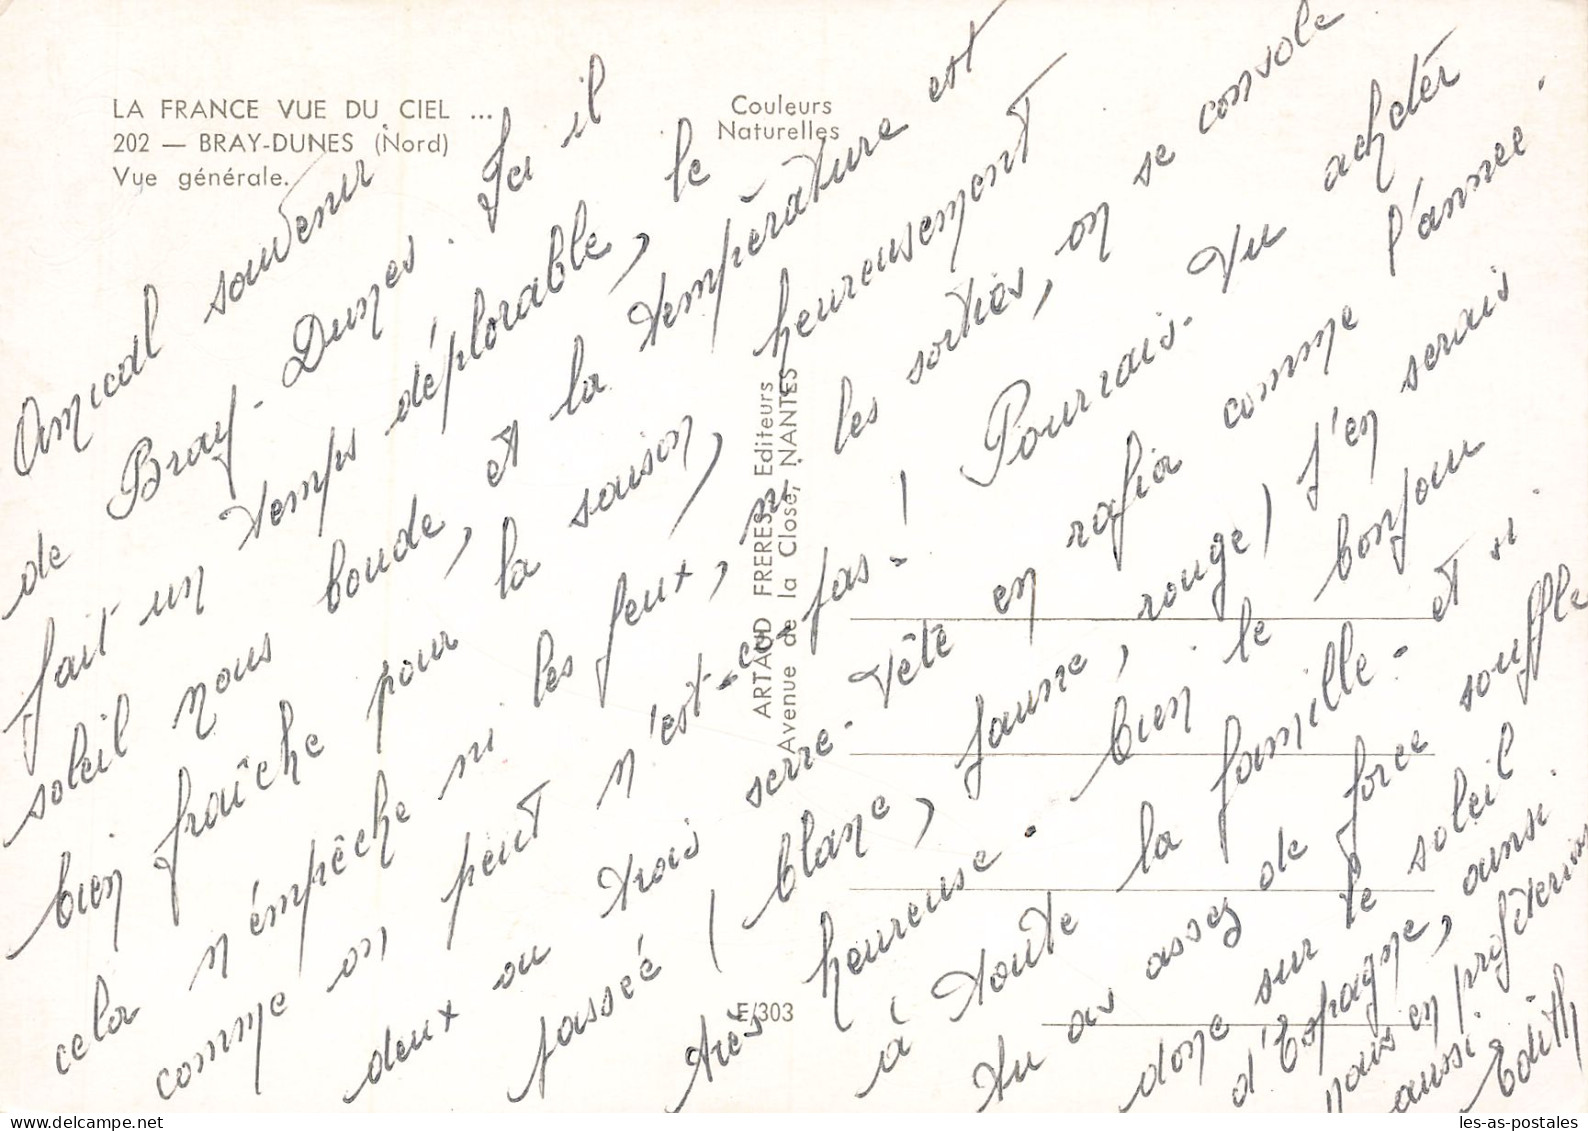 LA FRANCE VUE DU CIEL ...
202 — BRAY-DUNES (Nord)
Vue générale.
Couleurs
Naturelles
ARTAUD FRERES Editeurs
Avenue de la Close, NANTES
E/303
Amical souvenir
de Bray-Dunes. Ici il
fait un temps déplorable, le
soleil nous boude, et la température est
bien fraîche pour la saison, heureusement
cela n'empêche ni les jeux, ni les sorties, on se console
comme on peut n'est-ce-pas-! Pourrais-tu acheter
deux ou trois serre-tête en rafia comme l'année
passée (blanc, jaune, rouge) J'en serais
très heureuse - bien le bonjour
à toute la famille - et si
tu as assez de force souffle
donc sur le soleil
d'Espagne, ainsi
nous en profiterions
aussi.
Edith
les-as-postales